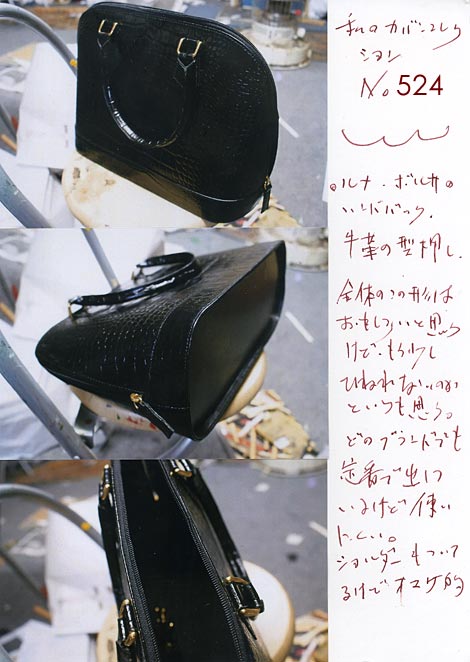 私のカバンコレク
ション
No. 524
○ルナ・ボルサの
ハンドバック。
牛革の型押し。
全体のこの形は
おもしろいと思う
けど、もう少し
ひねれないのか
といつも思う。
どのブランドでも
定番で出て
いるけど使い
にくい。
ショルダーもついて
るけどオマケ的